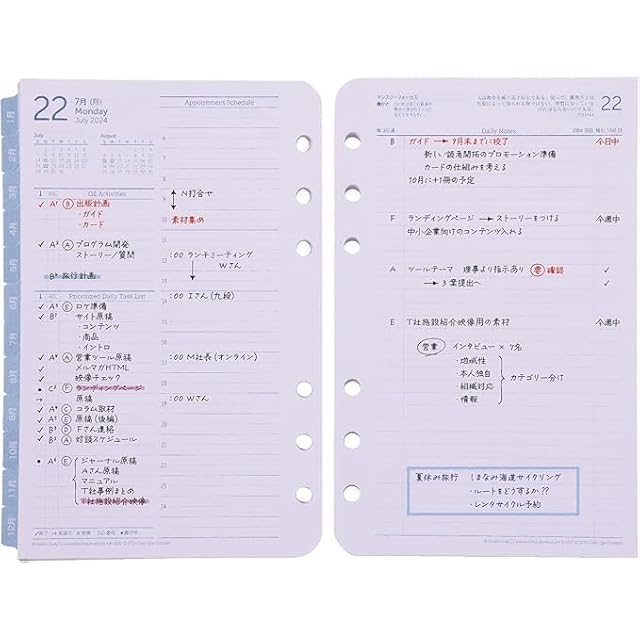 22
7月 (月)
Monday
July 2024
July
August
1月
2月
3月
4月
5月
6月
7月
8月
9月
10月
11月
12月
Appointment Schedule
6
7
8
9
10
N打合せ
素材集め
:00 ランチミーティング
Wさん
:00 Iさん(九段)
:00 M社長(オンライン)
:00 Wさん
24
✓ A¹ Ⓑ 出版計画
・ガイド
・カード
✓ A² Ⓐ プログラム開発
ストーリー/質問
旅行計画
Prioritized Daily Task List
Ⓔ ロケ準備
サイト原稿
・コンテンツ
・商品
・イントロ
Ⓐ 営業ツール原稿
メルマガHTML
映像チェック
Ⓕ ランディングページ
原稿
Ⓒ コラム取材
Ⓔ 原稿(後編)
Ⓓ Fさん連絡
Ⓐ 対談スケジュール
Ⓔ ジャーナル原稿
Aさん原稿
マニュアル
T社事例まとめ
T社施設紹介映像
22
マンスリーフォーカス:
Daily Notes
B ガイド → 9月末までに校了 今日中
新しい読者開拓のプロモーション準備
カードの仕組みを考える
10月に+1冊の予定
F ランディングページ → ストーリーをつける 今週中
中小企業向けのコンテンツ入れる
A ツールテーマ 理事より指示あり 要 確認 ✓
→ 3案提出へ ✓
E T社施設紹介映像用の素材 今週中
営業 インタビュー × 7名
・地域性
・本人独自
・組織対応
・情報
カテゴリー分け
夏休み旅行 しまなみ海道サイクリング
・ルートをどうするか??
・レンタサイクル予約